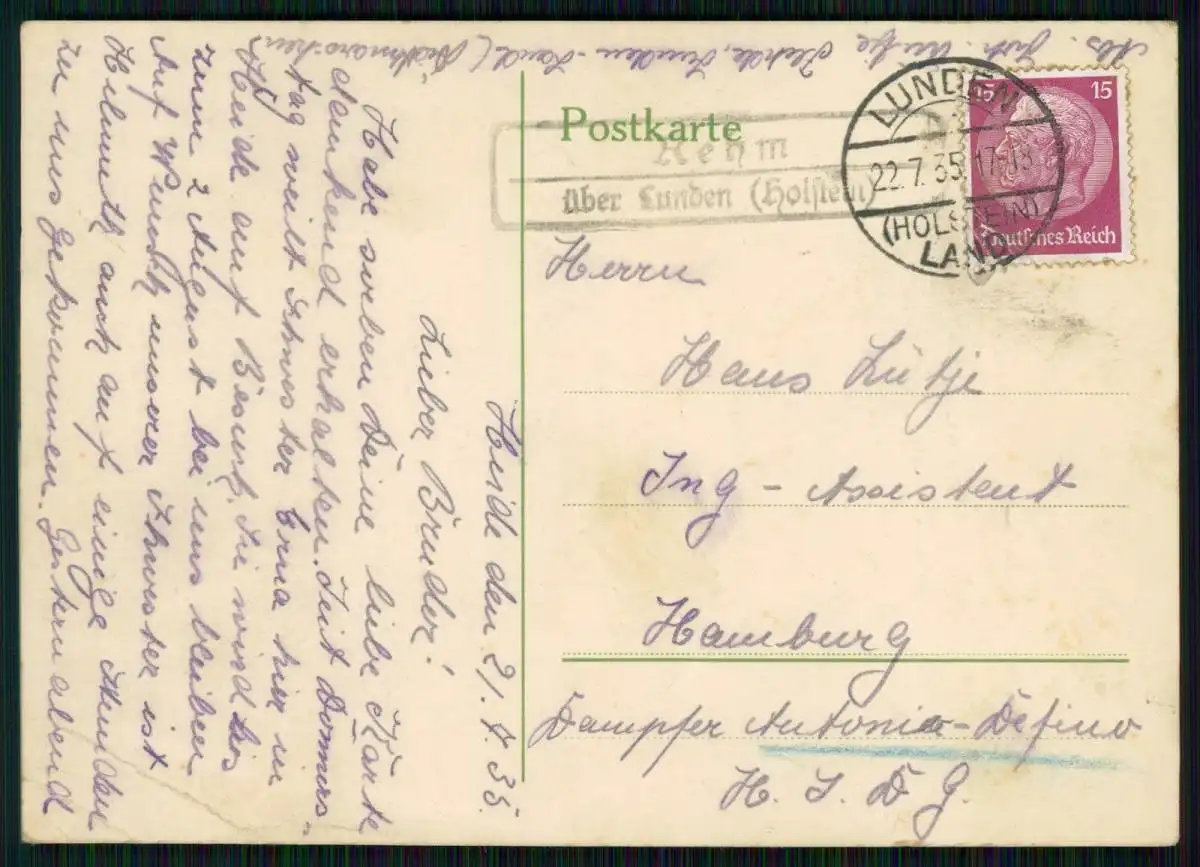 Postkarte
Rehm
über Lunden (Holstein)
LUNDEN
22.7.35.17-18
(HOLSTEIN)
LAND
15
15
Deutsches Reich
Herrn
Hans Lütje
Ing - Assistent
Hamburg
Dampfer Antonio-Delfino
H. S. D. G.
Heide den 21.7.35.
Lieber Bruder!
Habe soeben Deine liebe Karte
dankend erhalten. Seit Donners-
tag weilt Schwester Erna hier in
Heide auf Besuch. Sie wird bis
zum 2 August bei uns bleiben.
Auf Wunsch unserer Schwester ist
Helmuth auch auf einige Stunden
zu uns gekommen. Gestern abend